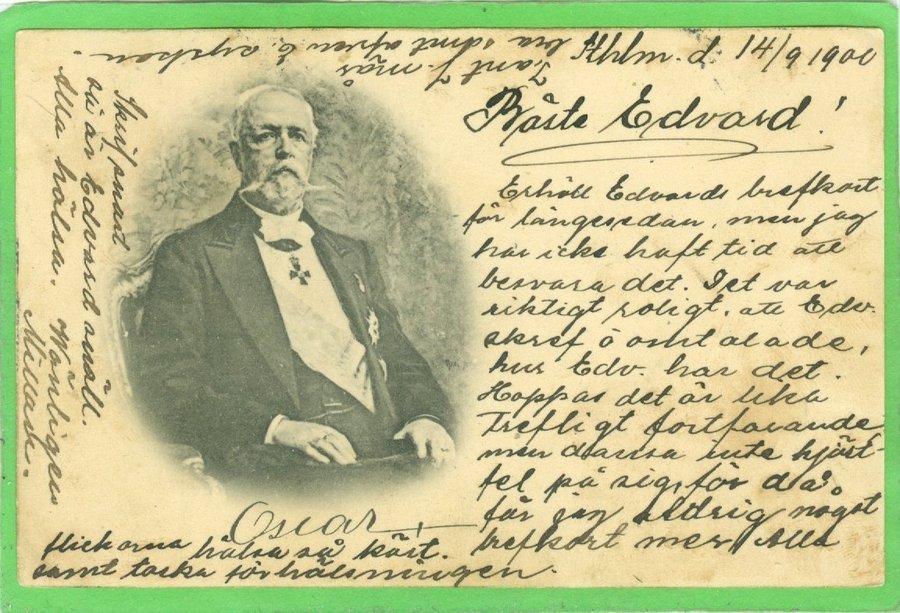 Sthlm. d. 14/9 1900
Bäste Edvard!
Erhöll Edvards brefkort
för längesedan, men jag
har icke haft tid att
besvara det. Det var
riktigt roligt, att Edv.
skref o omtalade,
hur Edv. har det.
Hoppas det är lika
trefligt fortfarande
men dansa inte hjärt-
fel på sig, för då
får jag aldrig något
brefkort mer. Alla
flickorna hälsa så kärt.
samt tacka för hälsningen.
Skrif snart
så är Edvard snäll.
Alla hälsa. Vänligen
samt af
Oscar